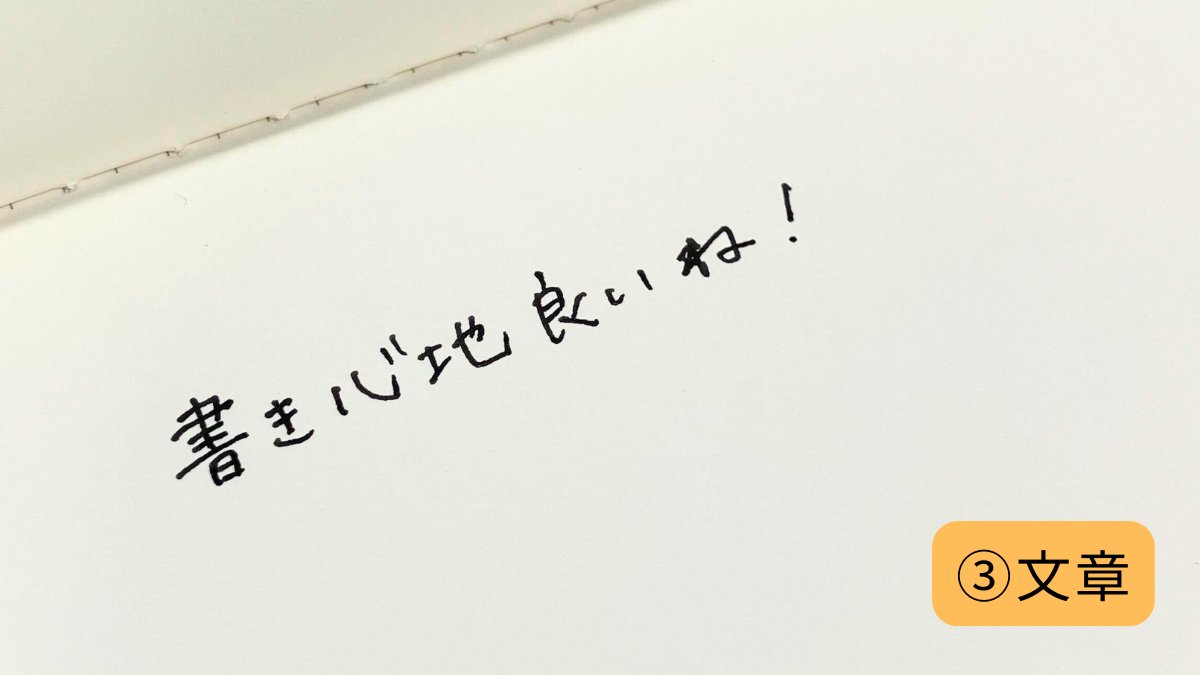 書き心地良いね!
③文章